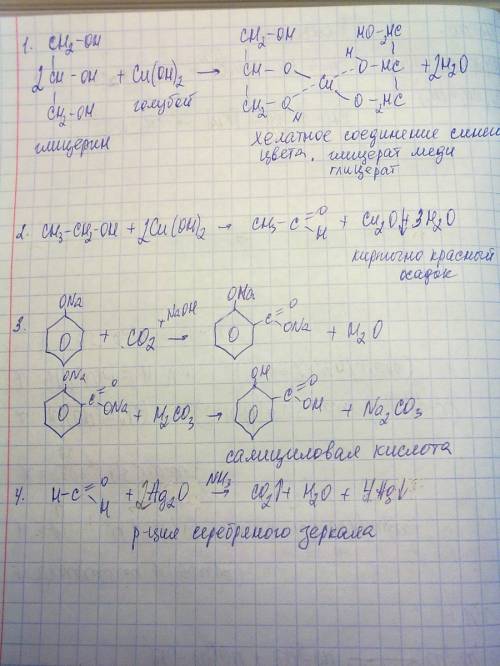 1. CH₂-OH CH₂-OH HO-₂HC
2 CH-OH + Cu(OH)₂ → CH-O Cu H O-HC + 2H₂O
CH₂-OH голубой CH₂-O H O-₂HC
глицерин хелатное соединение синего
цвета, глицерат меди
глицерат
2. CH₃-CH₂-OH + 2Cu(OH)₂ → CH₃-C=O H + Cu₂O↓ + 3H₂O
кирпично красный
осадок
ONa ONa
3. + CO₂ + NaOH → C=O ONa + H₂O
ONa OH
C=O ONa + H₂CO₃ → C=O OH + Na₂CO₃
салициловая кислота
4. H-C=O H + 2Ag₂O NH₃ → CO₂↑ + H₂O + 4Ag↓
р-ция серебряного зеркала